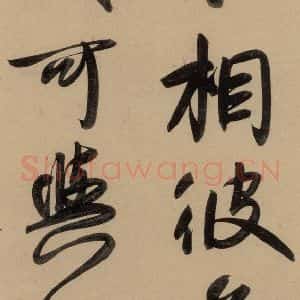 相彼
可與
Shufawang.CN